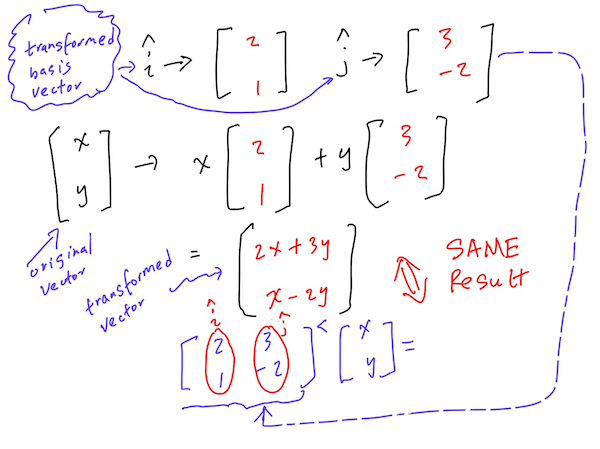 transformed basis vector → î → [2 1] ĵ → [3 -2]
[x y] → x [2 1] + y [3 -2]
original vector
transformed vector
= [2x+3y x-2y]
SAME Result
î ĵ
[2 3 1 -2] [x y] =